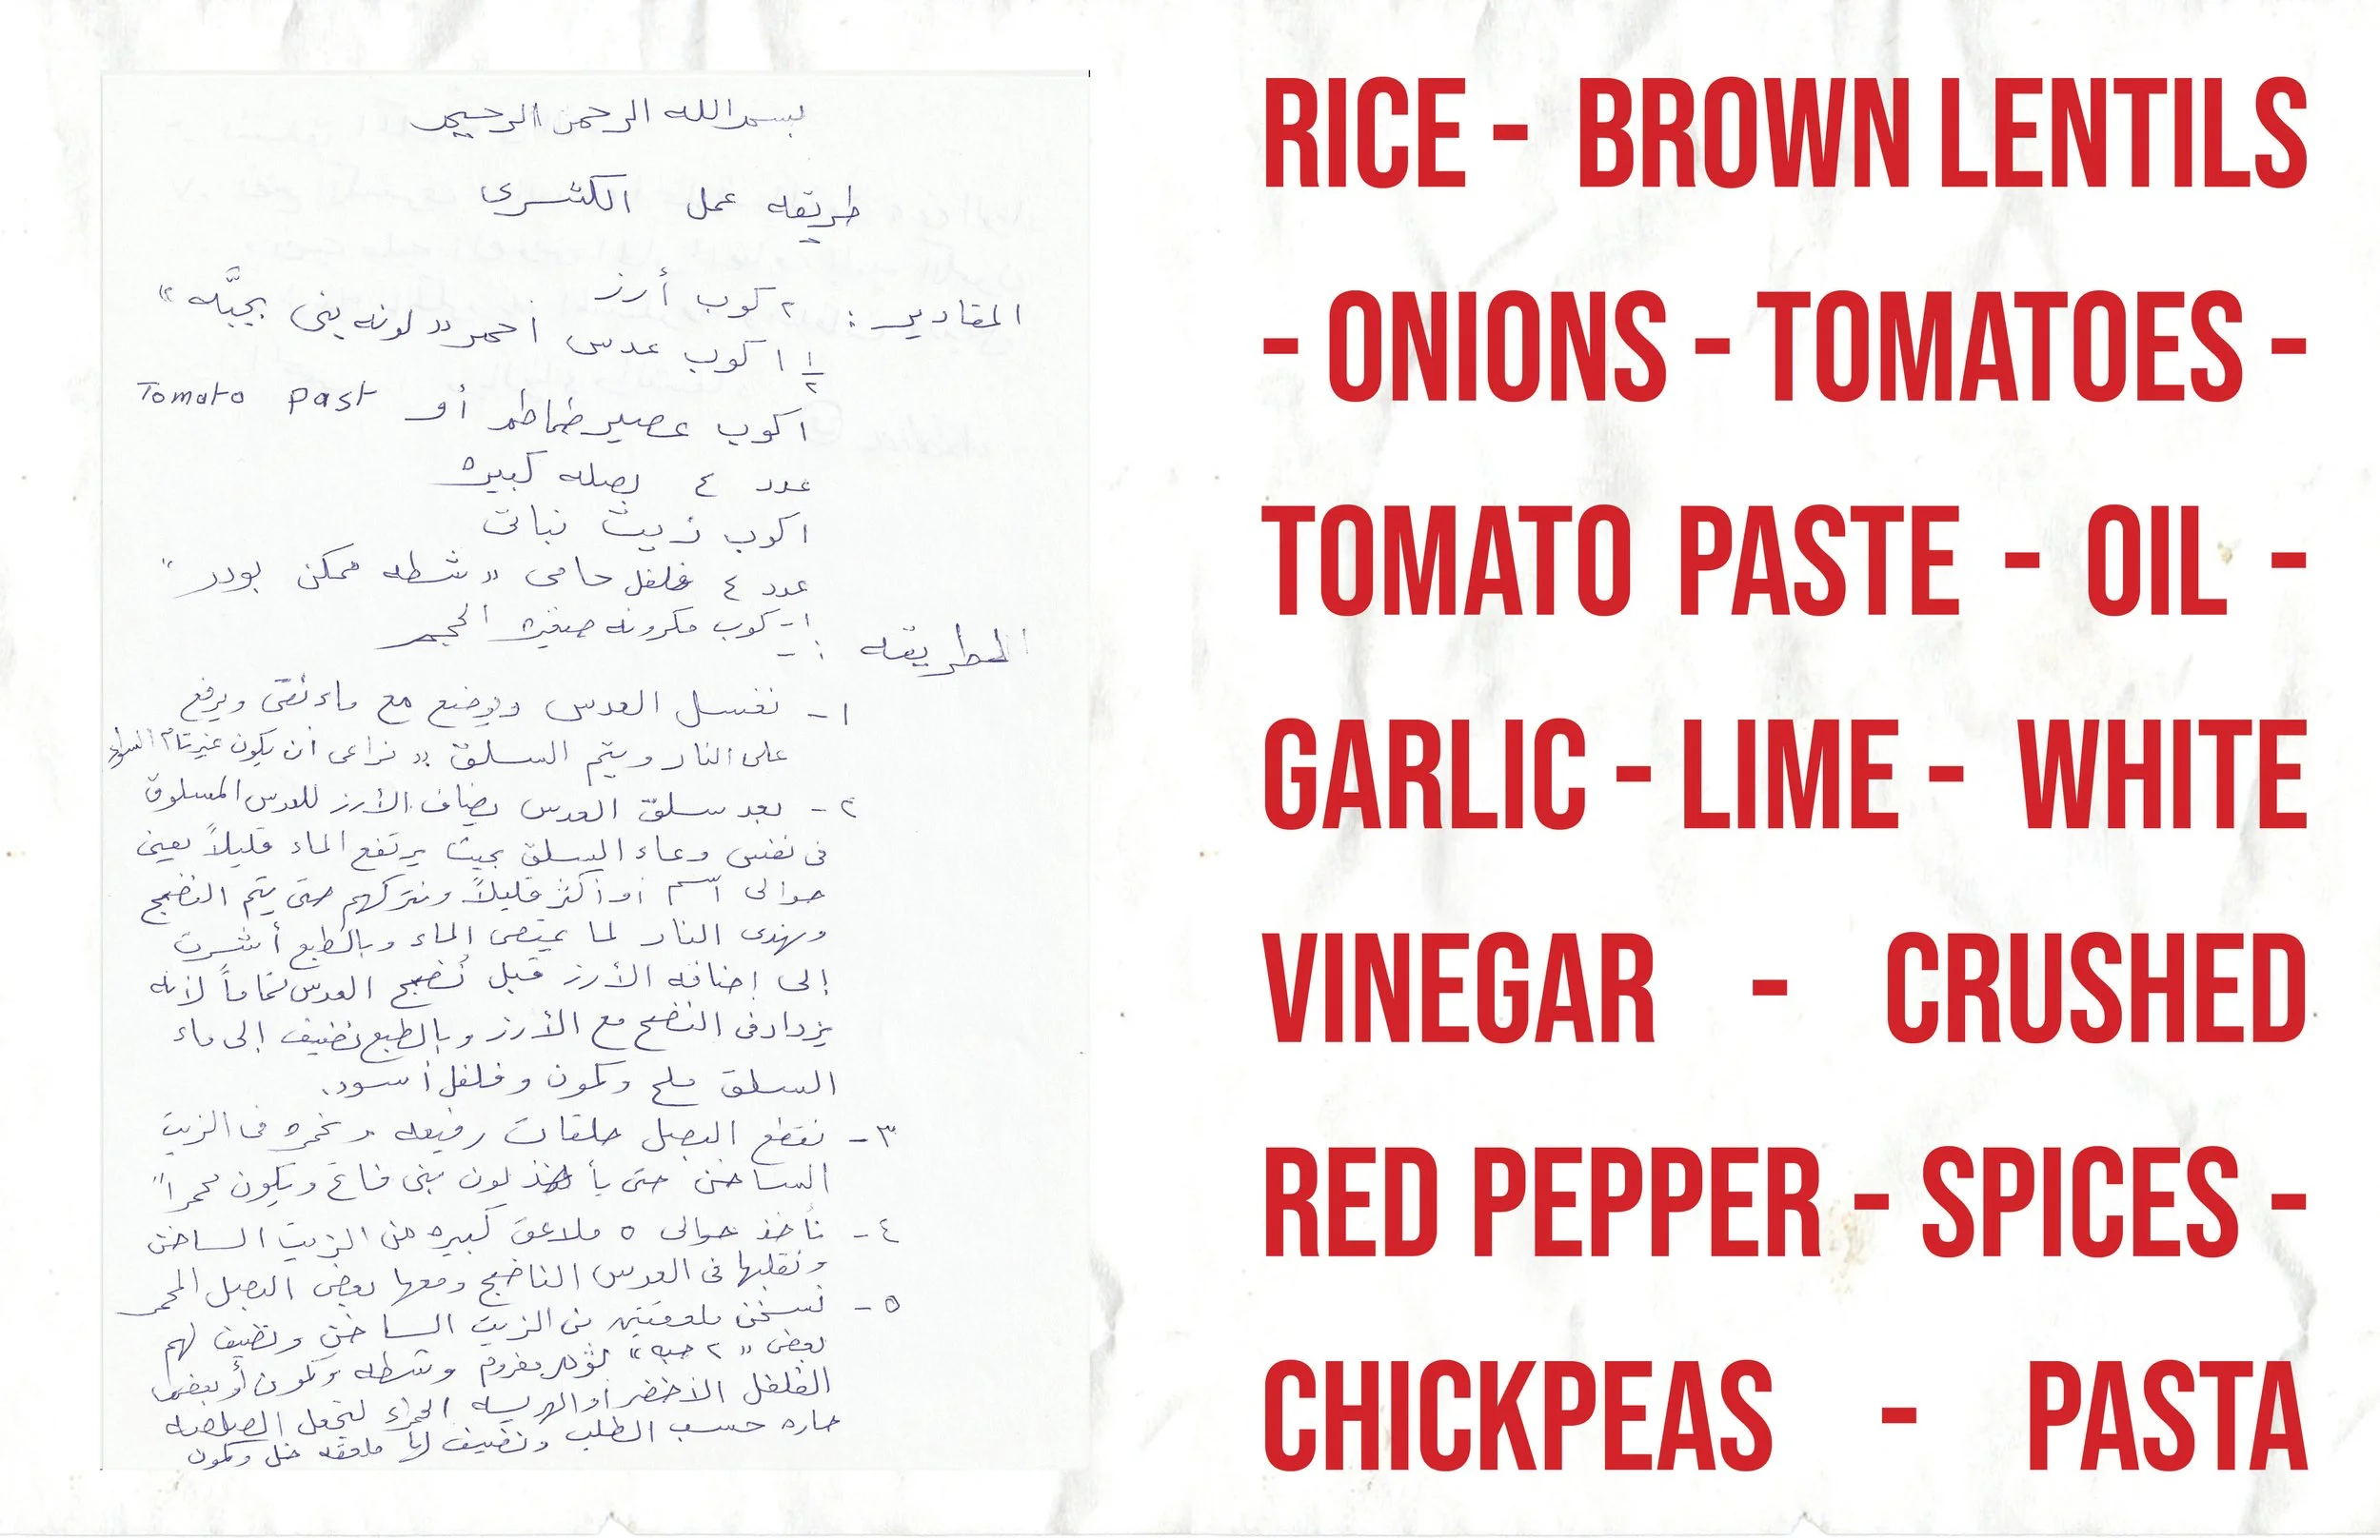 بسم الله الرحمن الرحيم
طريقه عمل الكشرى
المقادير : ٢ كوب أرز
١ ١/٢ كوب عدس احمر « لونه بنى بجبَّه »
١ كوب عصير طماطم أو Tomato past
عدد ٤ بصله كبيره
١ كوب زيت نباتى
عدد ٤ فلفل حامى « شطه ممكن بودر »
١- كوب مكرونه صغيره الحجم
الطريقه :-
١- نغسل العدس ويوضع مع ماء نقى ويرفع
على النار ويتم السلق « نراعى أن يكون غير تام السواء
٢- بعد سلق العدس يضاف الأرز للعدس المسلوق
فى نفس وعاء السلق بحيث يرتفع الماء قليلاً يعنى
حوالى ٣سم أو أكثر قليلاً ونتركهم حتى يتم النضج
ونهدى النار لما يمتص الماء وبالطبع أشرت
إلى إضافه الأرز قبل نُضج العدس تماماً لأنه
يزداد فى النضج مع الأرز وبالطبع نضيف إلى ماء
السلق ملح وكمون وفلفل أسود.
٣- نقطع البصل حلقات رفيعه ونحمره فى الزيت
الساخن حتى يأخذ لون بنى فاتح ويكون محمراً
٤- نأخذ حوالى ٥ ملاعق كبيره من الزيت الساخن
ونقلبها فى العدس الناضج ومعها بعض البصل المحمر
٥- نسخن ملعقتين من الزيت الساخن ونضيف لهم
بعض « ٢ حبه » ثوم مفروم وشطه وكمون أو بعض
الفلفل الأخضر أو الهريسه الحمراء لتجعل الصلصه
حاره حسب الطلب ونضيف لها ملعقه خل وكمون
RICE - BROWN LENTILS
- ONIONS - TOMATOES -
TOMATO PASTE - OIL -
GARLIC - LIME - WHITE
VINEGAR - CRUSHED
RED PEPPER - SPICES -
CHICKPEAS - PASTA